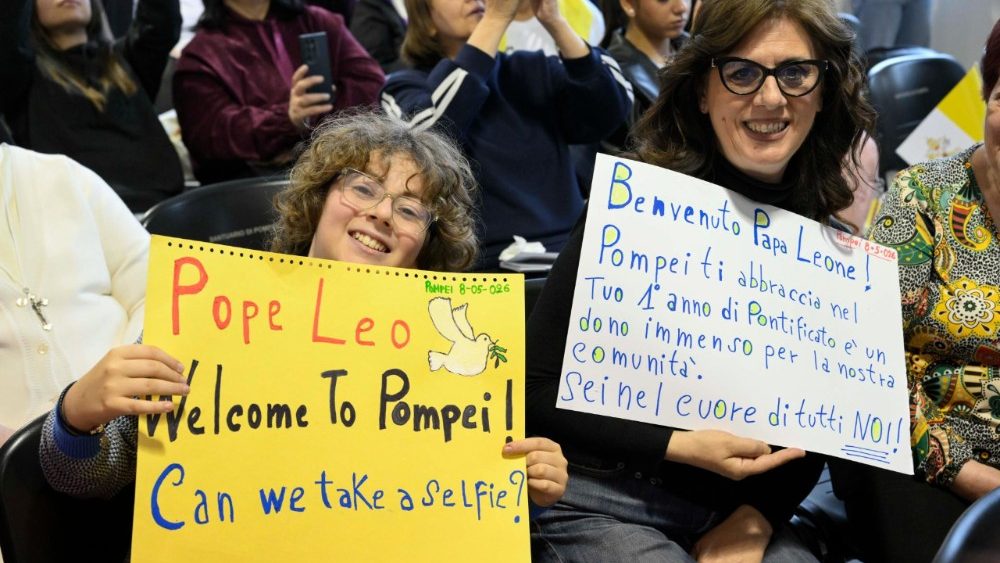 Pope Leo
POMPEI 8-05-026
Welcome To Pompei!
Can we take a selfie?
Benvenuto Papa Leone!
Pompei 8-5-026
Pompei ti abbraccia nel
Tuo 1° anno di Pontificato e' un
dono immenso per la nostra
comunita'.
Sei nel cuore di tutti NOI!!